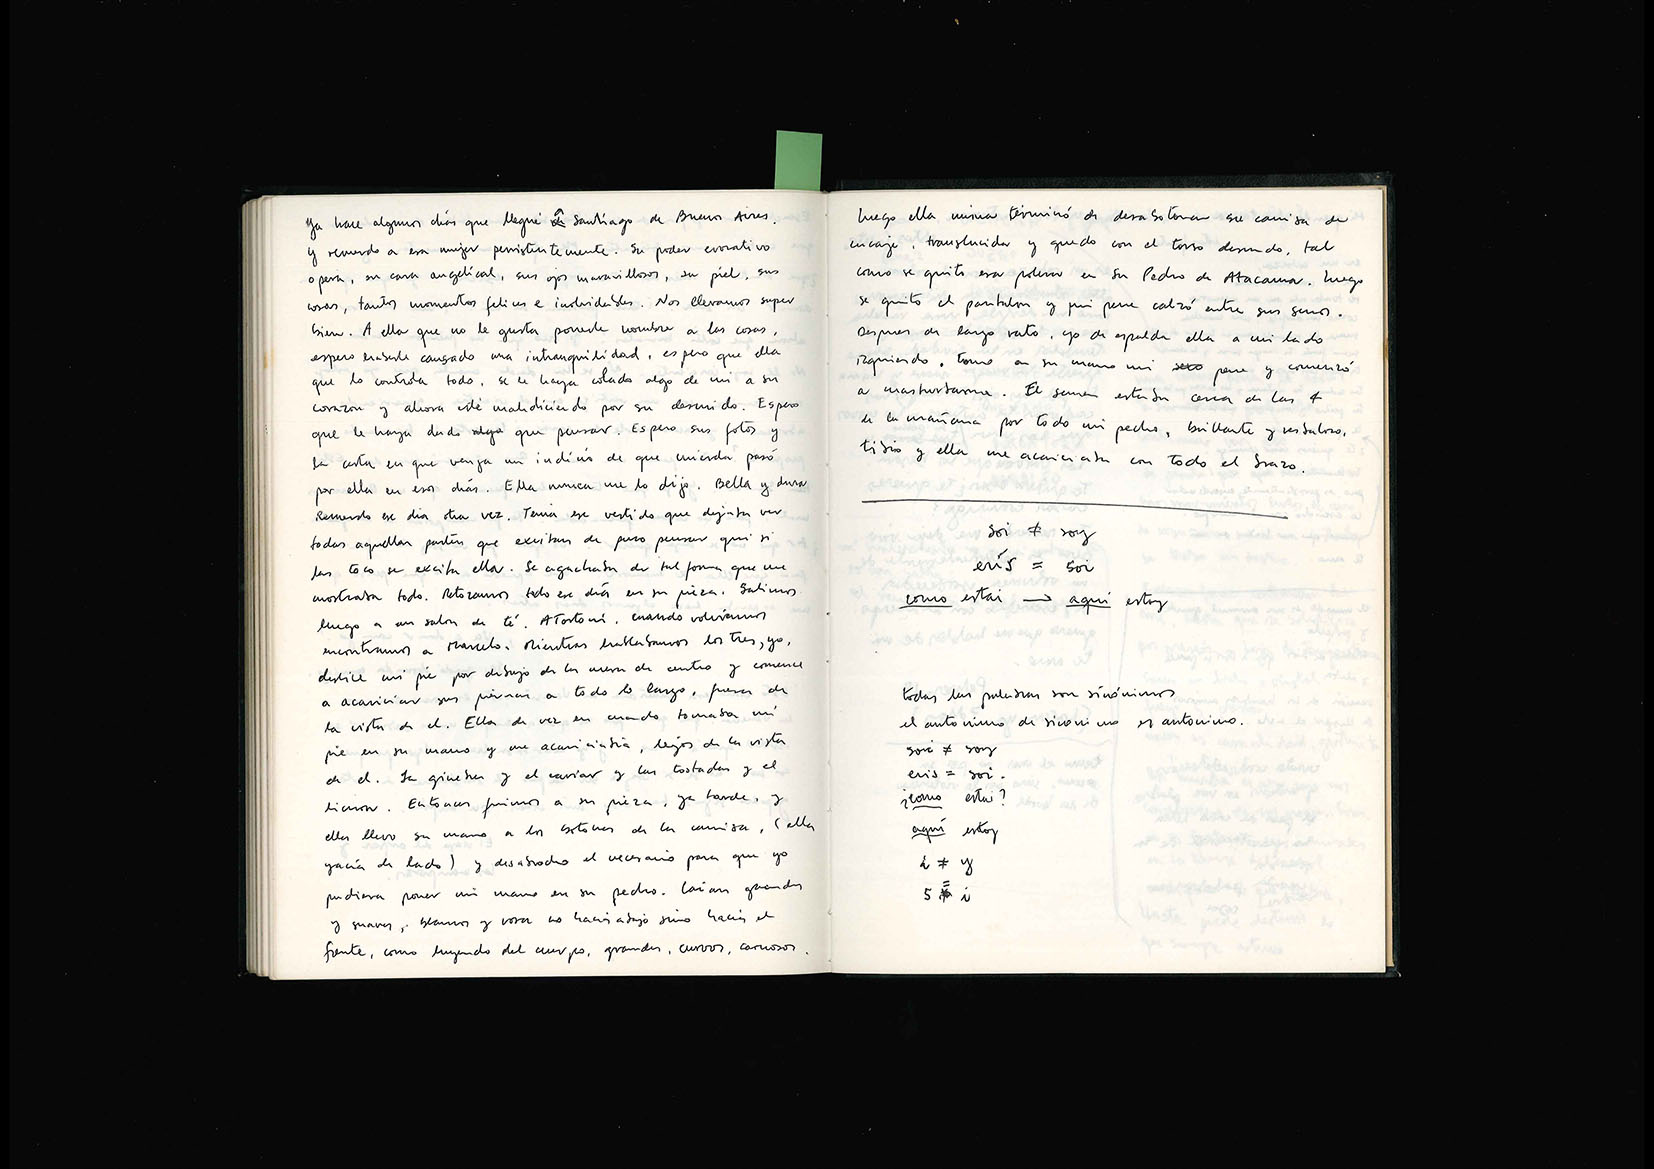 Ya hace algunos días que llegué a Santiago de Buenos Aires.
Y recuerdo a esa mujer persistentemente. Su poder evocativo
opera, su cara angelical, sus ojos maravillosos, su piel, sus
cosas, tantos momentos felices e inolvidables. Nos llevamos super
bien. A ella que no le gusta ponerle nombre a las cosas,
espero haberle causado una intranquilidad, espero que ella
que lo controla todo, se le haya colado algo de mi a su
corazon y ahora esté maldiciendo por su descuido. Espero
que le haya dado algo que pensar. Espero sus fotos y
la carta en que venga un indicio de que mierda pasó
por ella en esos días. Ella nunca me lo dijo. Bella y dura
Recuerdo ese dia otra vez. Tenia ese vestido que dejaba ver
todas aquellas partes que excitan de puro pensar que si
las toco se excita ella. Se agachaba de tal forma que me
mostraba todo. Retozamos todo ese día en su pieza. Salimos
luego a un salon de té. A Tortoni. Cuando volvíamos
encontramos a Marcelo. Mientras hablabamos los tres, yo,
deslice mi pie por debajo de la mesa de centro y comence
a acariciar sus piernas a todo lo largo, fuera de
la vista de el. Ella de vez en cuando tomaba mi
pie en su mano y me acariciaba, lejos de la vista
de el. La ginebra y el caviar y las tostadas y el
licuor. Entonces fuimos a su pieza, ya tarde, y
ella llevo su mano a los botones de la camisa, (ella
yacía de lado) y desabrocho el necesario para que yo
pudiera poner mi mano en su pecho. Caían grandes
y suaves, blancos y rosa no hacia abajo sino hacia el
frente, como huyendo del cuerpo, grandes, curvos, carnosos.
luego ella misma terminó de desabotonar su camisa de
encaje, translucida y quedo con el torso desnudo, tal
como se quito esa polera en San Pedro de Atacama. Luego
se quito el pantalon y mi pene calzó entre sus senos.
Despues de largo rato, yo de espalda ella a mi lado
izquierdo, tomo en su mano mi sexo pene y comenzó
a masturbarme. El semen estaba cerca de las 4
de la mañana por todo mi pecho, brillante y resbaloso,
tibio y ella me acariciaba con todo el brazo.
soi ≠ soy
erís = soi
como estai → aquí estoy
todas las palabras son sinónimos
el antonimo de sinonimo es antonimo.
soi ≠ soy
eris = soi.
¿como estai?
aquí estoy
i ≠ y
s = i